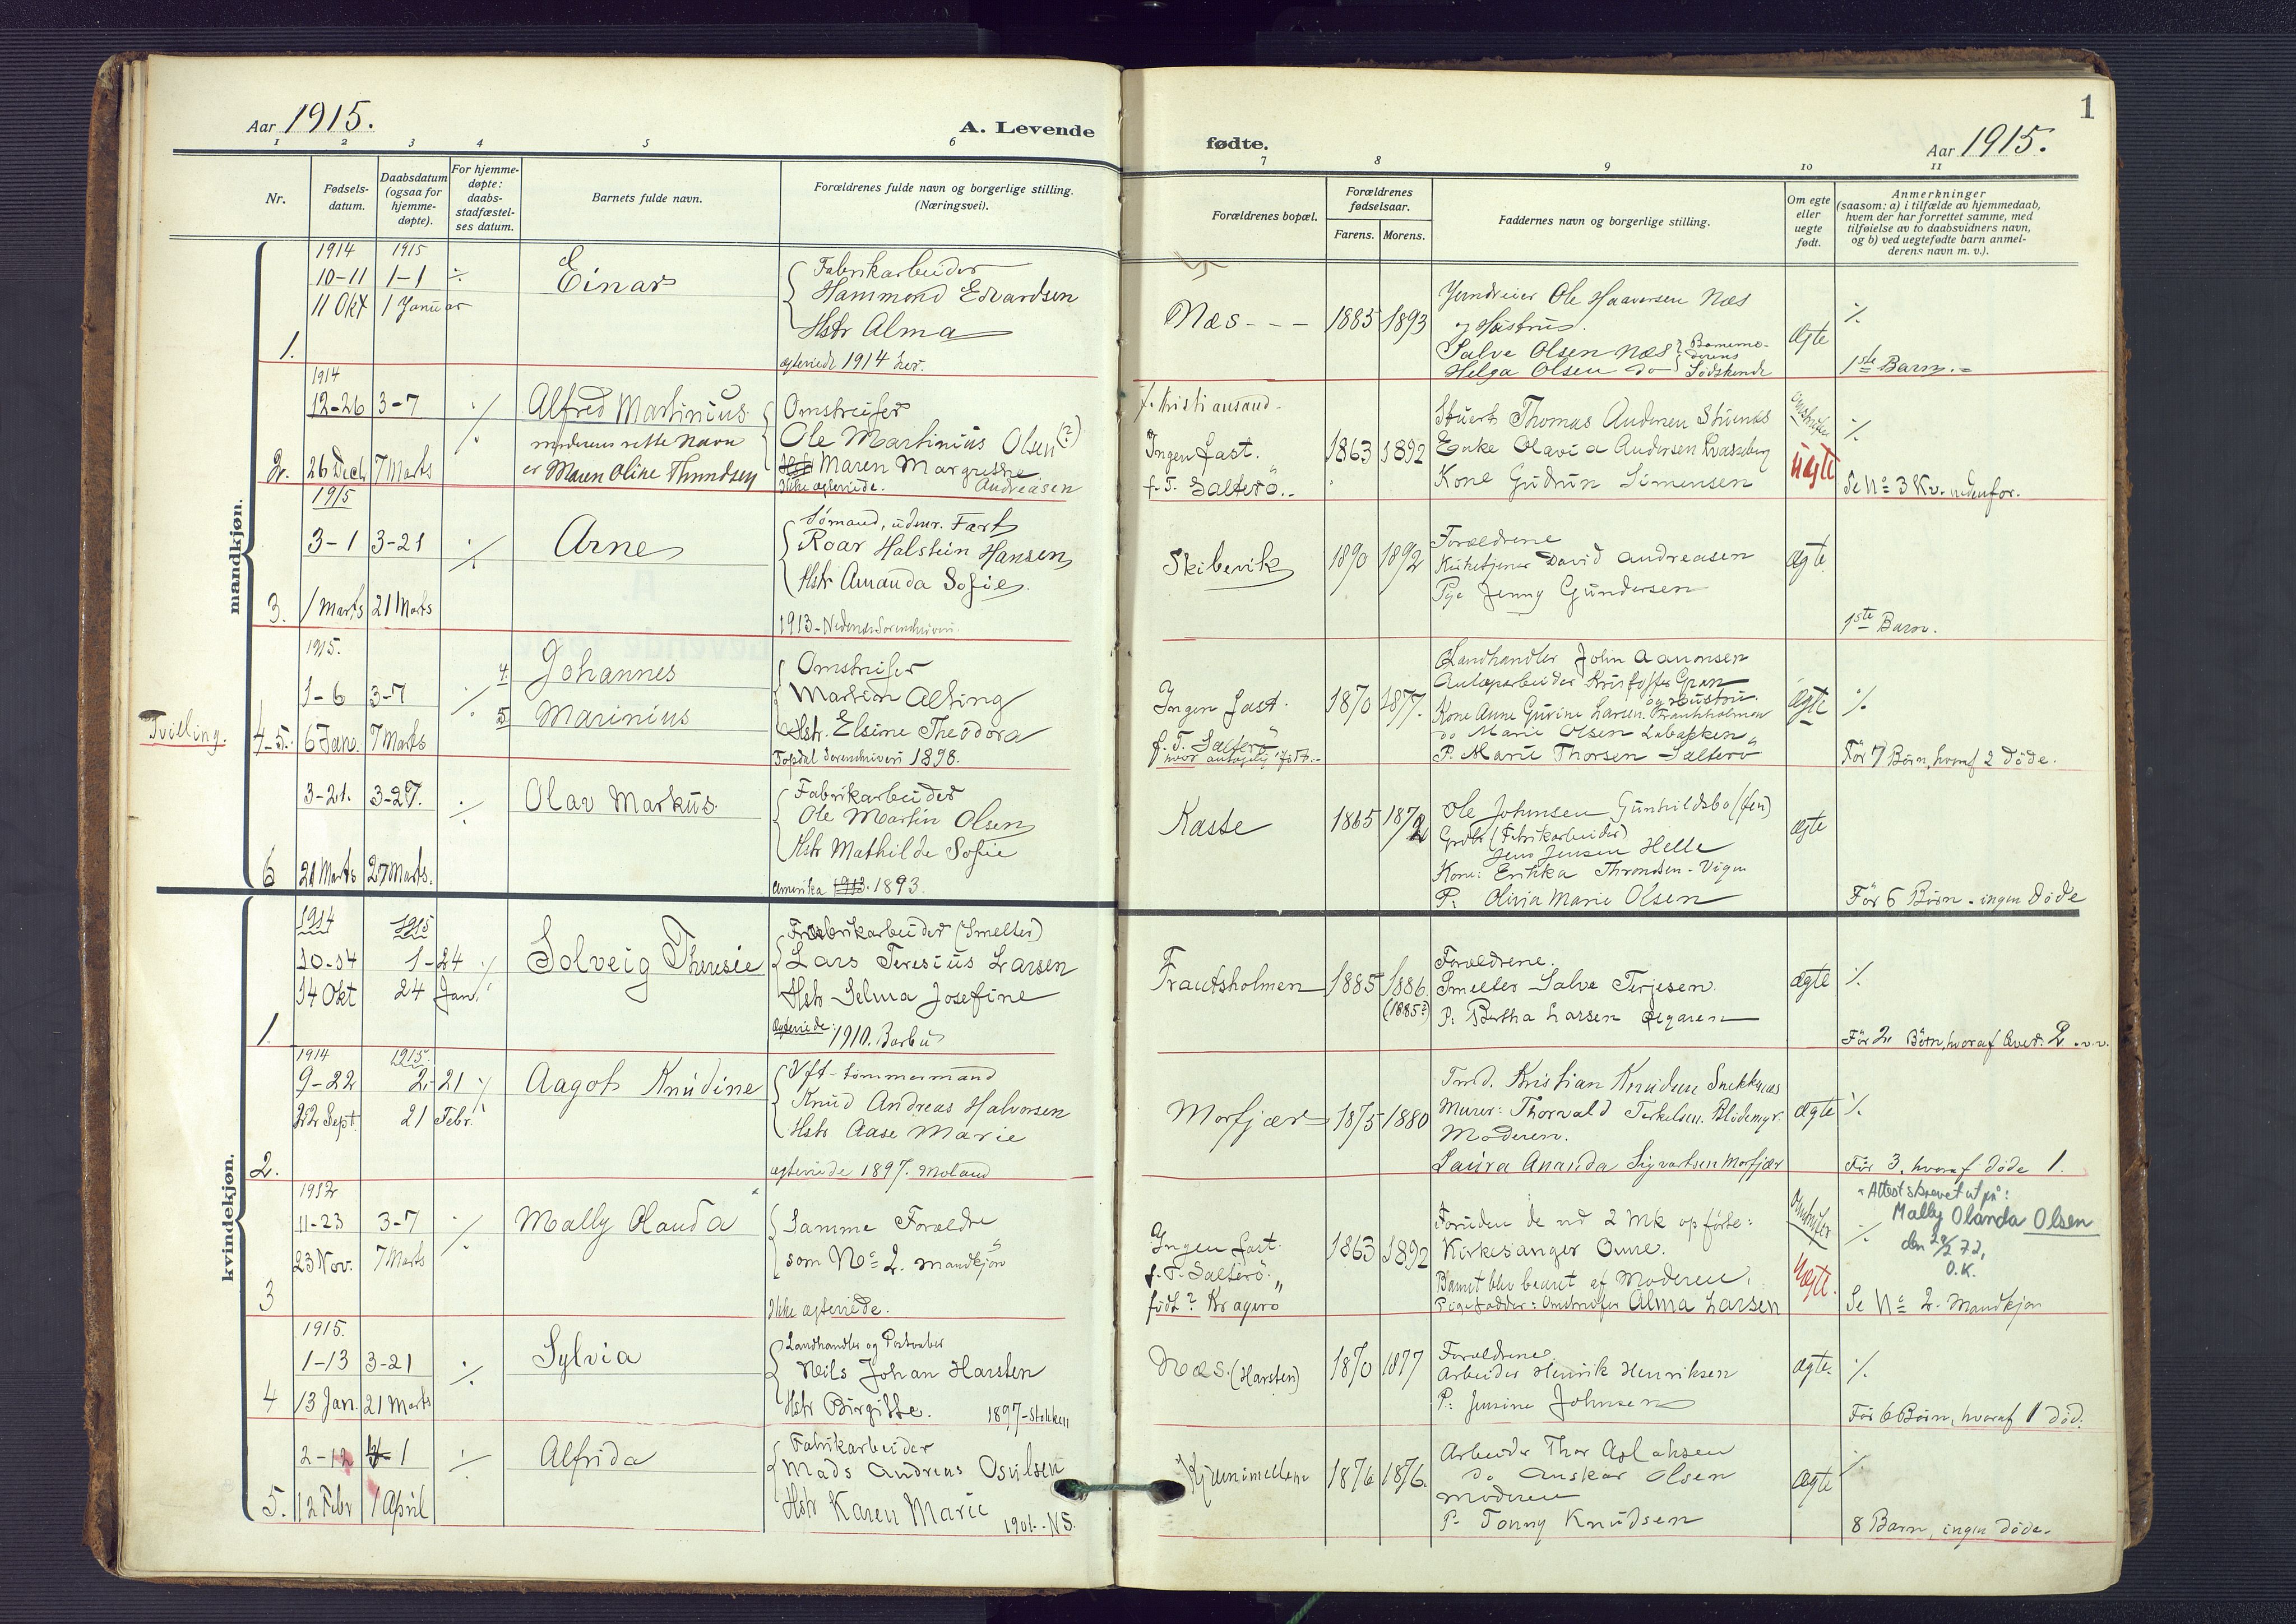 1
Aar 1915.
A. Levende
fødte.
Aar 1915.
1 2 3 4 5 6 7 8 9 10 11
Nr.
Fødsels-
datum.
Daabsdatum
(ogsaa for
hjemme-
døpte).
For hjemme-
døpte:
daabs-
stadfæstel-
ses datum.
Barnets fulde navn.
Forældrenes fulde navn og borgerlige stilling.
(Næringsvei).
Forældrenes bopæl.
Forældrenes
fødselsaar.
Farens. Morens.
Faddernes navn og borgerlige stilling.
Om egte
eller
uegte
født.
Anmerkninger
(saasom: a) i tilfælde av hjemmedaab,
hvem der har forrettet samme, med
tilføielse av to daabsvidners navn,
og b) ved uegtefødte barn anmel-
derens navn m. v.).
mandkjøn.
1.
1914 1915
10-11 1-1 ÷
11 Okt 1 Januar
Einar
Fabrikarbeider
Hammond Edvardsen
Hstr Alma
egteviede 1914 her.
Næs - - -
1885 1893
Ole Haaversen Næs
Salve Olsen Næs
Helga Olsen do
Sødskende
Ægte
1ste Barn.
2.
1914
12-26 3-7
26 Dech 7 Marts
Alfred Martinius
moderens rette Navn
er Maren Oline Thundsen
Omstreifer
Ole Martinius Olsen (?)
Maren Margrethe
Andreasen
Ikke egteviede.
f. Kristiansand
Ingen fast.
f. T. Salterö.
1863 1892
Thomas Andersen
Enke Olavia Andersen
Kone Gudrun Simensen
Omstreifer
Uægte
Se No 3 Kv. nedenfor.
3.
1915
3-1 3-21
1 Marts 21 Marts
Arne
Sømand, udenr. Fart
Roar Halstein Hansen
Hstr Amanda Sofie.
1913 - Nedenes Sorenskriveri.
Skibevik
1890 1892
Forældrene
David Andreasen
Pige Jenny Gundersen
Ægte
1ste Barn.
Tvilling.
4-5.
1915.
1-6 3-7
6 Jan. 7 Marts
4. Johannes
5. Marinius
Omstreifer
Martin Alting
Hstr. Elsine Theodora
Topdal Sorenskriveri 1898.
Ingen fast.
f. T. Salterö
1870 1877.
Landhandler John Aanonsen
Kristoffer Gran
og Hustru
Kone Anne Gurine Larsen.
do Marie Olsen
P. Marie Thorsen - Salterö
Ægte
Før 7 Børn, hvoraf 2 døde.
6
3-21. 3-27.
21 Marts 27 Marts.
Olav Markus.
Fabrikarbeider
Ole Martin Olsen
Hstr Mathilde Sofie
Amerika 1893.
Kaste
1865 1872
Ole Johnsen Gunhildsbo
(Fabrikarbeider)
Jens Jensen Helle
Kone: Erikka Throndsen - Vigen
P: Olivia Marie Olsen
Ægte
Før 6 Børn - ingen døde
kvindekjøn.
1.
1914 1915
10-14 1-24
14 Okt 24 Jan.
Solveig Theresie
Fabrikarbeider (Smelter)
Lars Teresius Larsen
Hstr Selma Josefine
Egteviede: 1910. Barbu
Frautsholmen
1885 1886
(1885?)
Forældrene.
Smelter Salve Terjesen.
P: Bertha Larsen
Ægte
Før 2 Børn, hvoraf
2.
1914 1915.
9-22 2-21
22 Sept. 21 Febr.
Aagot Knudine
Vft-tømmermand
Knud Andreas Halvorsen
Hstr Aase Marie
egteviede 1897. Moland
Morfjær
1875 1880
Tmd. Kristian Knudsen
Murer: Thorvald Terkelsen.
Moderen.
Laura Amanda Sigvartsen Morfjær
Ægte
Før 3, hvoraf døde 1.
3
1912
11-23 3-7
23 Nov. 7 Marts
Mally Olanda
Samme Forældre
som No 2. Mandkjøn
Ikke egteviede.
Ingen fast.
f. T. Salterö.
født? Kragerö
1863 1892
Foruden de ved 2 Mk opførte:
Kirkesanger Omre.
Barnet blev baaret af Moderen.
Pigefadder: Omstreifer Alma Larsen
Omstreifer
Uægte.
Attest skrevet ut på:
Mally Olanda Olsen
den 29/2 72.
O.K.
Se No 2. Mandkjøn
4
1915.
1-13 3-21
13 Jan. 21 Marts
Sylvia
Landhandler og Postaabner
Neils Johan Harsten
Hstr Birgitte. 1897 - Stokken
Næs. (Harsten)
1870 1877
Forældrene.
Arbeider Henrik Henriksen
P: Jensine Johnsen
Ægte.
Før 6 Børn, hvoraf 1 død.
5.
2-12 4-1
12 Febr 1 April
Alfrida
Fabrikarbeider
Mads Andreas Osvilsen
Hstr Karen Marie
1901. - NS.
1876 1876.
Arbeider Thor Aslaksen
do Anskar Olsen
Moderen
P. Tonny Knudsen
Ægte
8 Barn, ingen døde.